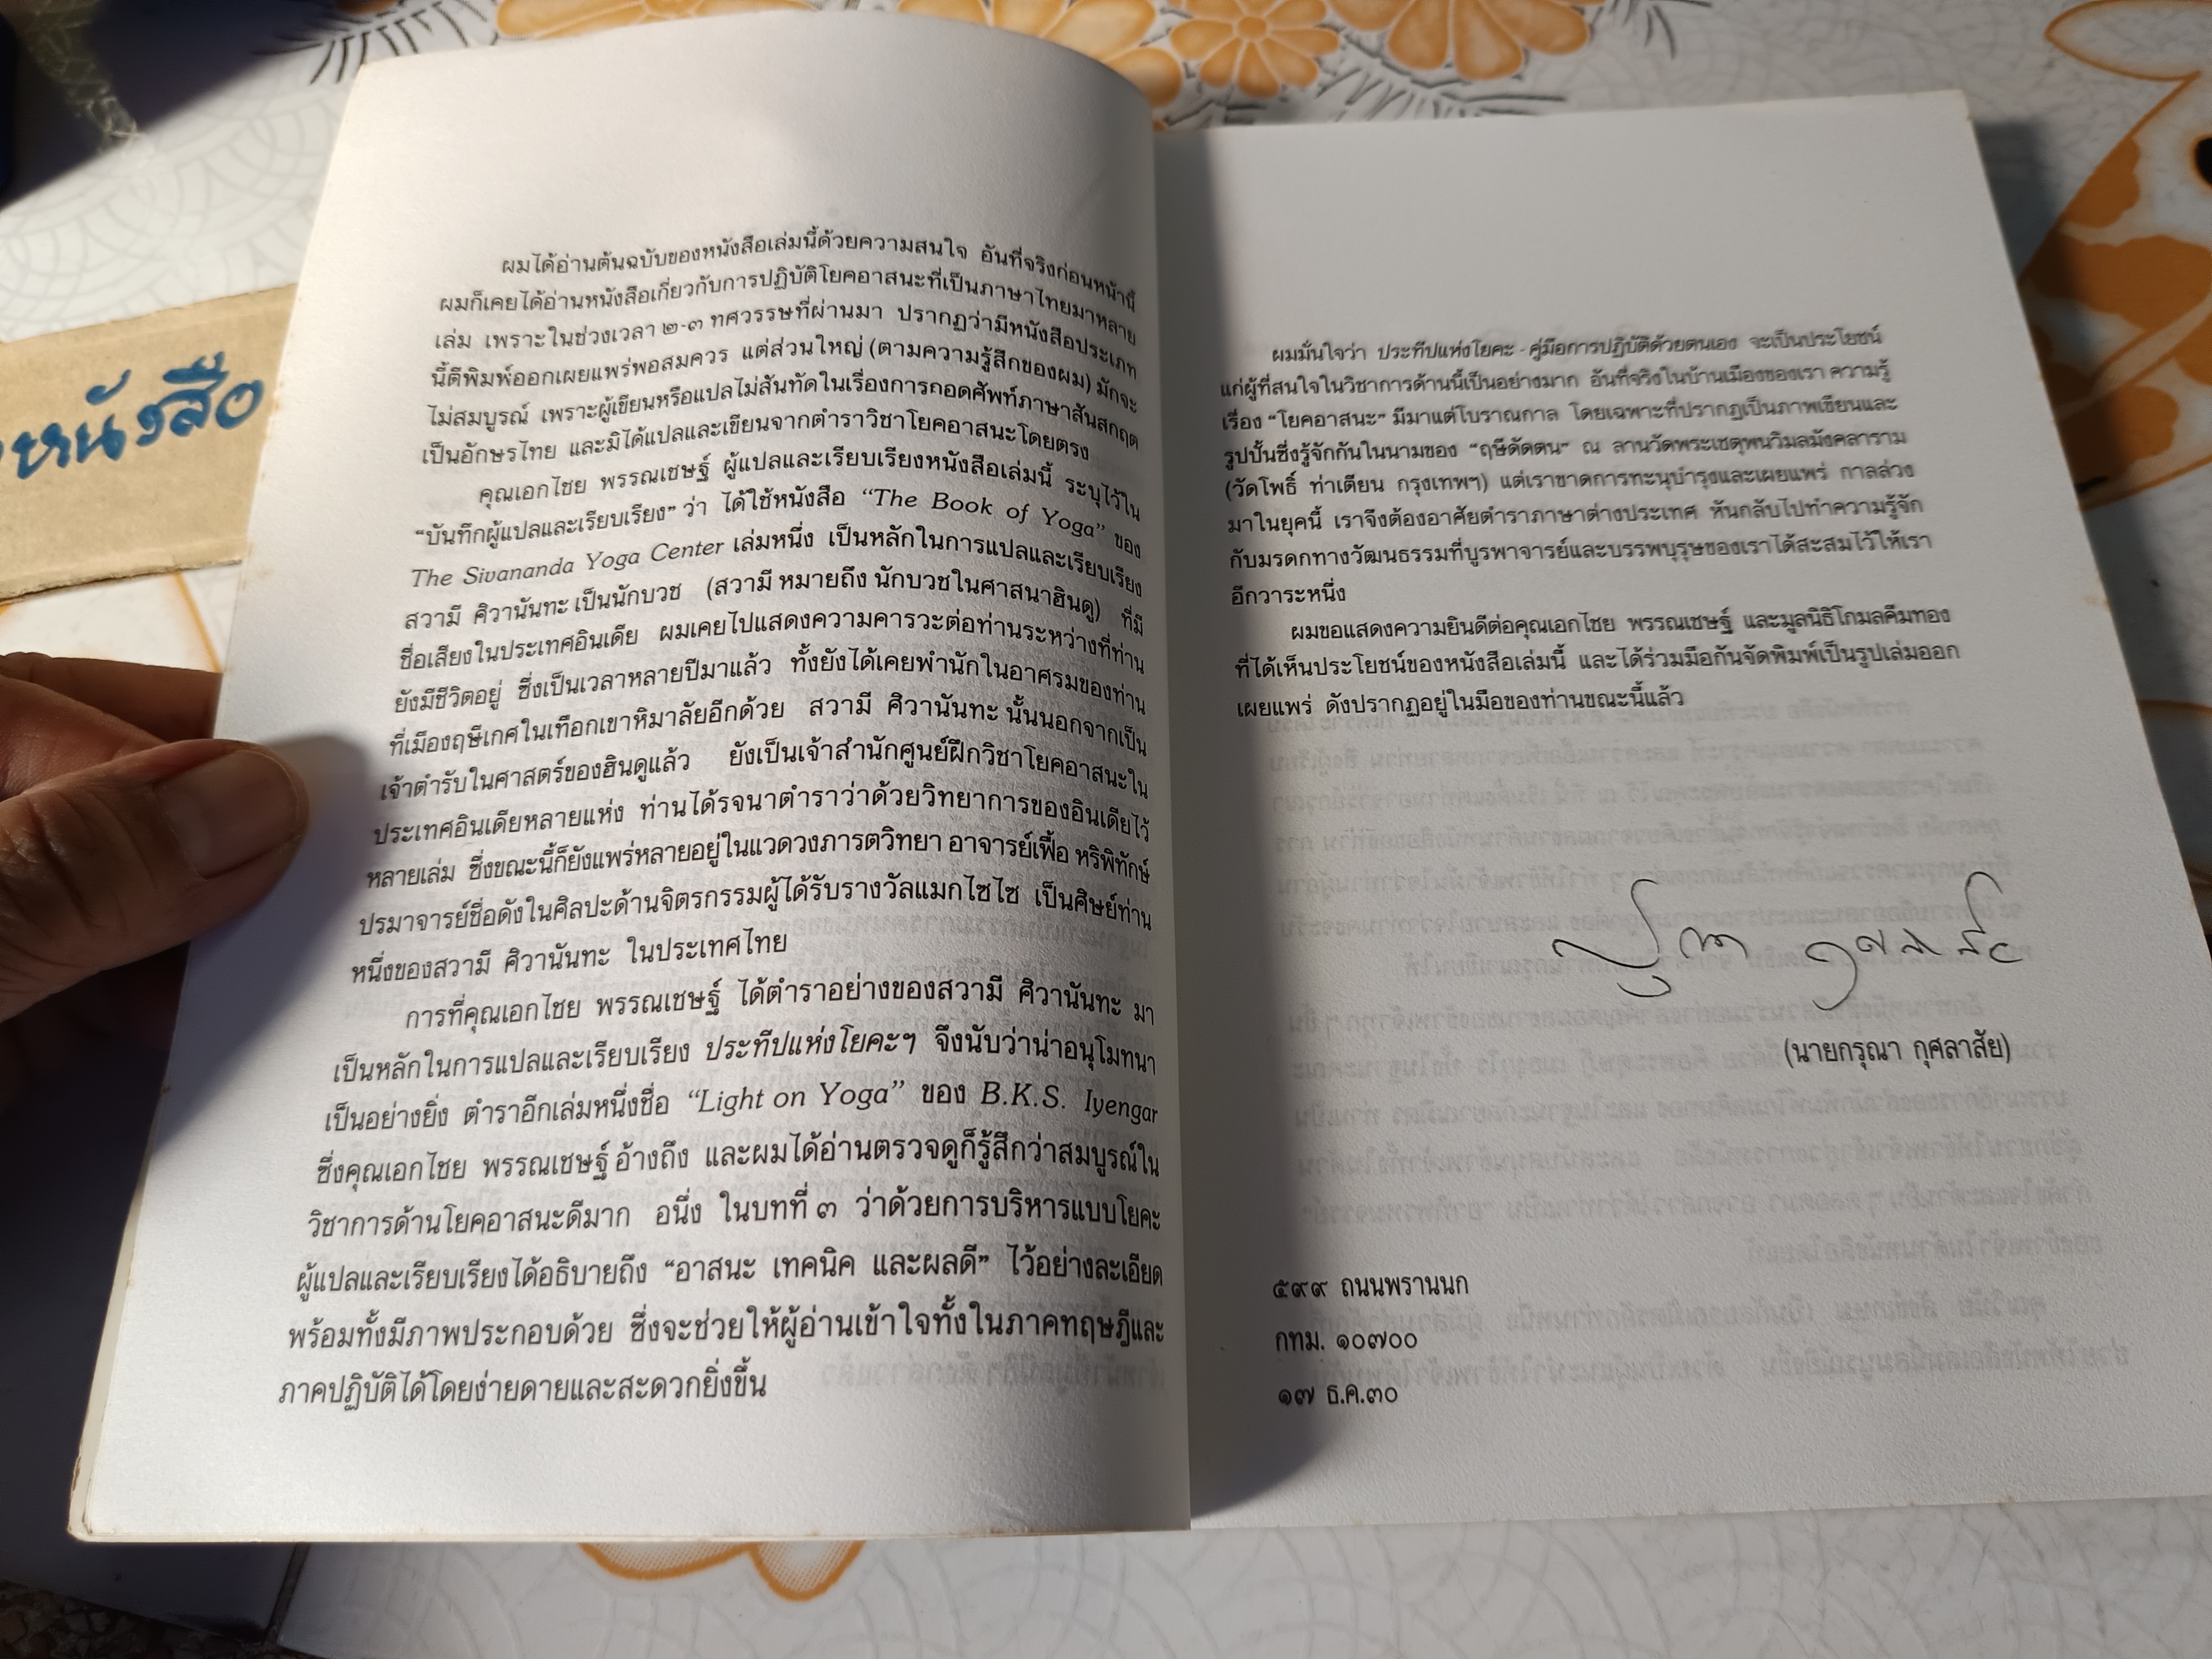 หนังสือ
ผมได้อ่านต้นฉบับของหนังสือเล่มนี้ด้วยความสนใจ อันที่จริงก่อนหน้านี้
ผมก็เคยได้อ่านหนังสือเกี่ยวกับการปฏิบัติโยคอาสนะที่เป็นภาษาไทยมาหลาย
เล่ม เพราะในช่วงเวลา ๒-๓ ทศวรรษที่ผ่านมา ปรากฏว่ามีหนังสือประเภท
นี้ตีพิมพ์ออกเผยแพร่พอสมควร แต่ส่วนใหญ่ (ตามความรู้สึกของผม) มักจะ
ไม่สมบูรณ์ เพราะผู้เขียนหรือแปลไม่สันทัดในเรื่องการถอดศัพท์ภาษาสันสกฤต
เป็นอักษรไทย และมิได้แปลและเขียนจากตำราวิชาโยคอาสนะโดยตรง
คุณเอกไชย พรรณเชษฐ์ ผู้แปลและเรียบเรียงหนังสือเล่มนี้ ระบุไว้ใน
“บันทึกผู้แปลและเรียบเรียง” ว่า ได้ใช้หนังสือ “The Book of Yoga” ของ
The Sivananda Yoga Center เล่มหนึ่ง เป็นหลักในการแปลและเรียบเรียง
สวามี ศิวานันทะ เป็นนักบวช (สวามี หมายถึง นักบวชในศาสนาฮินดู) ที่มี
ชื่อเสียงในประเทศอินเดีย ผมเคยไปแสดงความคารวะต่อท่านระหว่างที่ท่าน
ยังมีชีวิตอยู่ ซึ่งเป็นเวลาหลายปีมาแล้ว ทั้งยังได้เคยพำนักในอาศรมของท่าน
ที่เมืองฤษีเกศในเทือกเขาหิมาลัยอีกด้วย สวามี ศิวานันทะ นั้นนอกจากเป็น
เจ้าตำรับในศาสตร์ของฮินดูแล้ว ยังเป็นเจ้าสำนักศูนย์ฝึกวิชาโยคอาสนะใน
ประเทศอินเดียหลายแห่ง ท่านได้รจนาตำราว่าด้วยวิทยาการของอินเดียไว้
หลายเล่ม ซึ่งขณะนี้ก็ยังแพร่หลายอยู่ในแวดวงภารตวิทยา อาจารย์เฟื้อ หริพิทักษ์
ปรมาจารย์ชื่อดังในศิลปะด้านจิตรกรรมผู้ได้รับรางวัลแมกไซไซ เป็นศิษย์ท่าน
หนึ่งของสวามี ศิวานันทะ ในประเทศไทย
การที่คุณเอกไชย พรรณเชษฐ์ ได้ตำราอย่างของสวามี ศิวานันทะ มา
เป็นหลักในการแปลและเรียบเรียง ประทีปแห่งโยคะฯ จึงนับว่าน่าอนุโมทนา
เป็นอย่างยิ่ง ตำราอีกเล่มหนึ่งชื่อ “Light on Yoga” ของ B.K.S. Iyengar
ซึ่งคุณเอกไชย พรรณเชษฐ์ อ้างถึง และผมได้อ่านตรวจดูก็รู้สึกว่าสมบูรณ์ใน
วิชาการด้านโยคอาสนะดีมาก อนึ่ง ในบทที่ ๓ ว่าด้วยการบริหารแบบโยคะ
ผู้แปลและเรียบเรียงได้อธิบายถึง “อาสนะ เทคนิค และผลดี” ไว้อย่างละเอียด
พร้อมทั้งมีภาพประกอบด้วย ซึ่งจะช่วยให้ผู้อ่านเข้าใจทั้งในภาคทฤษฎีและ
ภาคปฏิบัติได้โดยง่ายดายและสะดวกยิ่งขึ้น
ผมมั่นใจว่า ประทีปแห่งโยคะ - คู่มือการปฏิบัติด้วยตนเอง จะเป็นประโยชน์
แก่ผู้ที่สนใจในวิชาการด้านนี้เป็นอย่างมาก อันที่จริงในบ้านเมืองของเรา ความรู้
เรื่อง “โยคอาสนะ” มีมาแต่โบราณกาล โดยเฉพาะที่ปรากฏเป็นภาพเขียนและ
รูปปั้นซึ่งรู้จักกันในนามของ “ฤษีดัดตน” ณ ลานวัดพระเชตุพนวิมลมังคลาราม
(วัดโพธิ์ ท่าเตียน กรุงเทพฯ) แต่เราขาดการทะนุบำรุงและเผยแพร่ กาลล่วง
มาในยุคนี้ เราจึงต้องอาศัยตำราภาษาต่างประเทศ หันกลับไปทำความรู้จัก
กับมรดกทางวัฒนธรรมที่บูรพาจารย์และบรรพบุรุษของเราได้สะสมไว้ให้เรา
อีกวาระหนึ่ง
ผมขอแสดงความยินดีต่อคุณเอกไชย พรรณเชษฐ์ และมูลนิธิโกมลคีมทอง
ที่ได้เห็นประโยชน์ของหนังสือเล่มนี้ และได้ร่วมมือกันจัดพิมพ์เป็นรูปเล่มออก
เผยแพร่ ดังปรากฏอยู่ในมือของท่านขณะนี้แล้ว
(นายกรุณา กุศลาสัย)
๕๙๙ ถนนพรานนก
กทม. ๑๐๗๐๐
๑๗ ธ.ค.๓๐